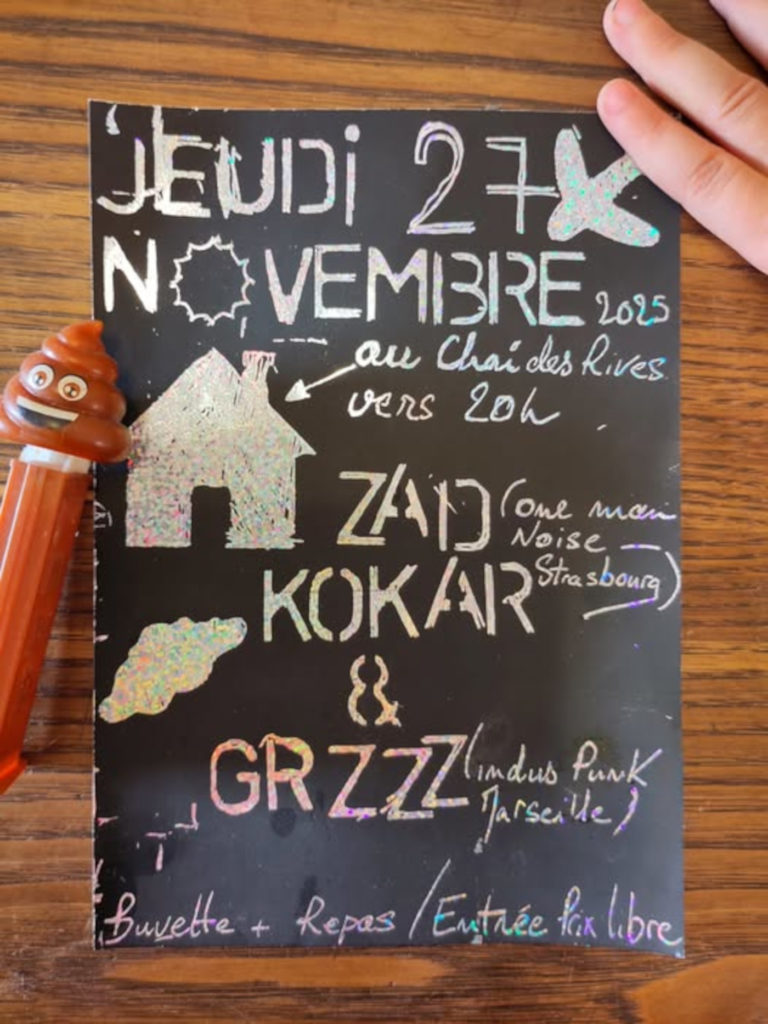 JEUDI 27
NOVEMBRE 2025
au Chai des Rives
vers 20h
ZAD (one man
Noise
KOKAR Strasbourg)
&
GRZZZ (indus Punk
Marseille)
Buvette + Repas / Entrée Prix libre